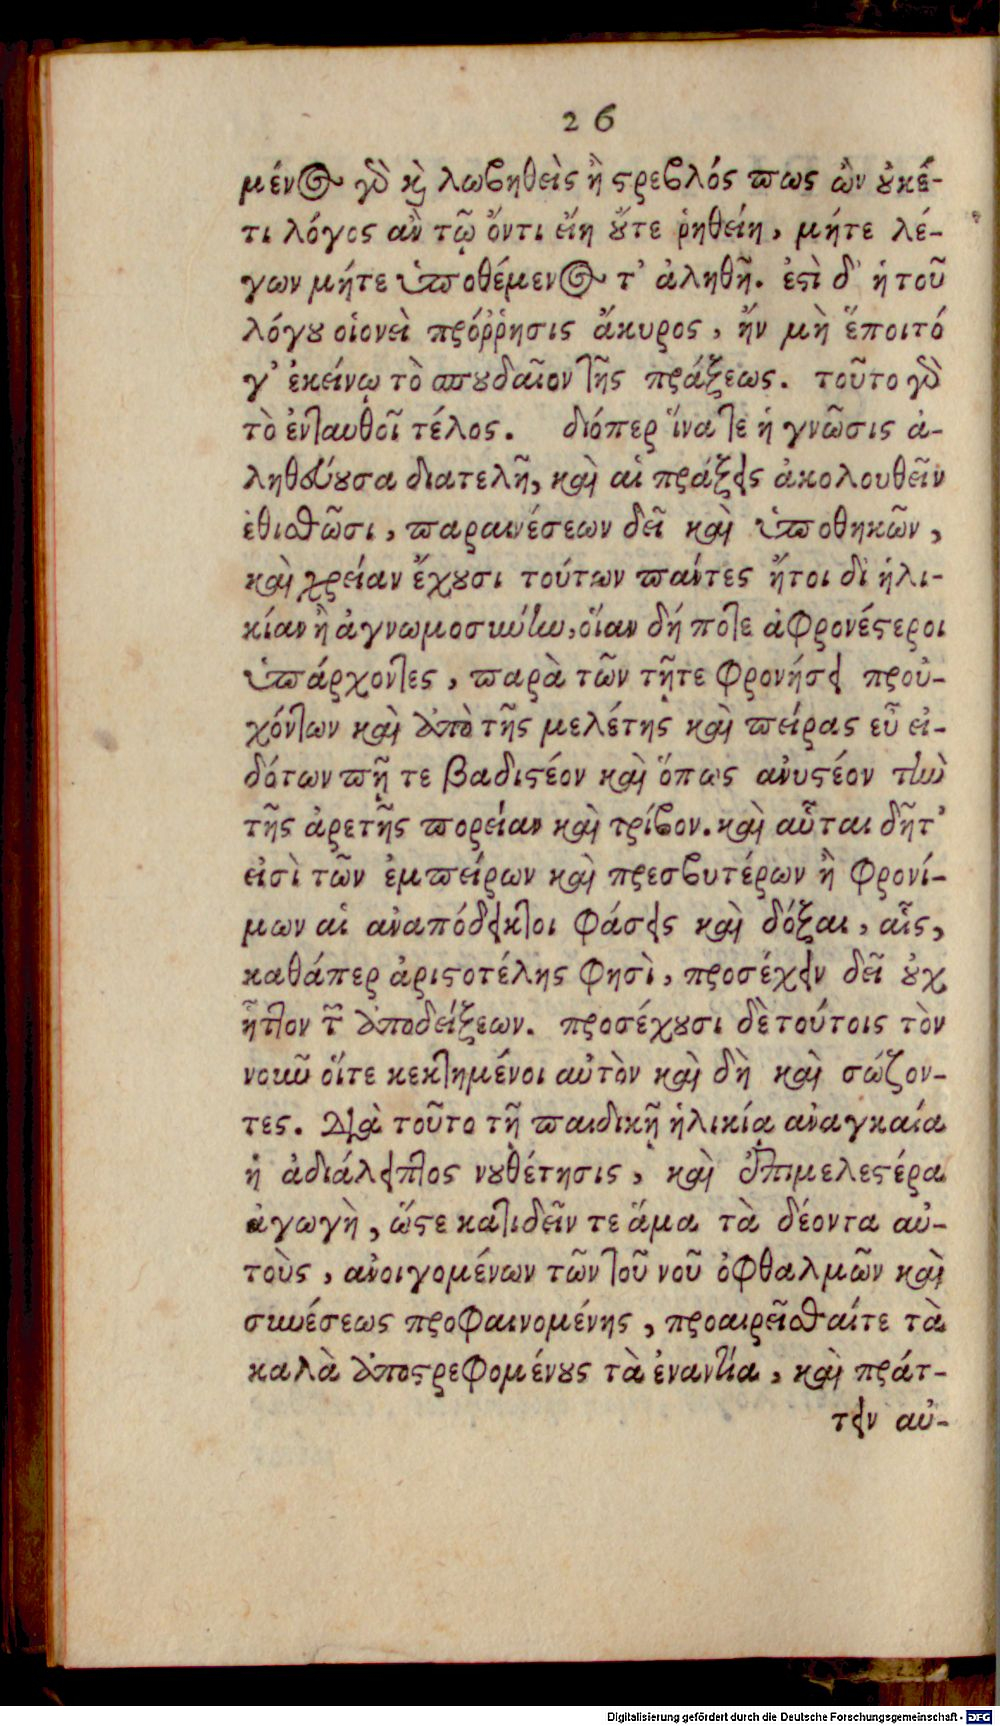 26
μένος γὸ κὶ λωβηθεὶς ἢ στρεβλός πως ὢν οὐκέ-
τι λόγος ἂν τῷ ὄντι εἴη οὔτε ῥηθείη, μήτε λέ-
γων μήτε ὑποθέμενος τ' ἀληθῆ. ἐστὶ δ' ἡ τοῦ
λόγου οἱονεὶ πρόῤῥησις ἄκυρος, ἤν μὴ ἕποιτό
γ' ἐκείνῳ τὸ σπουδαῖον τῆς πράξεως. τοῦτο γὸ
τὸ ἐνταυθοῖ τέλος. διόπερ ἵνα τε ἡ γνῶσις ἀ-
ληθεύουσα διατελῇ, καὶ αἱ πράξεις ἀκολουθεῖν
ἐθισθῶσι, παραινέσεων δεῖ καὶ ὑποθηκῶν,
καὶ χρείαν ἔχουσι τούτων πάντες ἤτοι δι ἡλι-
κίαν ἢ ἀγνωμοσύνην, οἵαν δή ποτε ἀφρονέστεροι
ὑπάρχοντες, παρὰ τῶν τῇτε φρονήσει πρού-
χόντων καὶ ἀπὸ τῆς μελέτης καὶ πείρας εὖ εἰ-
δότων πῇ τε βαδιστέον καὶ ὅπως ἀνυστέον τὴν
τῆς ἀρετῆς πορείαν καὶ τρίβον. καὶ αὗται δῆτ'
εἰσὶ τῶν ἐμπείρων καὶ πρεσβυτέρων ἢ φρονί-
μων αἱ ἀναπόδεικτοι φάσεις καὶ δόξαι, αἷς,
καθάπερ ἀριστοτέλης φησὶ, προσέχειν δεῖ οὐχ
ἧττον τῶν ἀποδείξεων. προσέχουσι δὲ τούτοις τὸν
νοῦν οἵτε κεκτημένοι αὐτὸν καὶ δὴ καὶ σώζον-
τες. Διὰ τοῦτο τῇ παιδικῇ ἡλικίᾳ ἀναγκαία
ἡ ἀδιάλειπτος νουθέτησις, καὶ ἐπιμελεστέρα
ἀγωγὴ, ὥστε κατιδεῖν τε ἅμα τὰ δέοντα αὐ-
τοὺς, ἀνοιγομένων τῶν τοῦ νοῦ ὀφθαλμῶν καὶ
συνέσεως προφαινομένης, προαιρεῖσθαίτε τὰ
καλὰ ἀποστρεφομένους τὰ ἐναντία, καὶ πράτ-
τειν αὐ-
Digitalisierung gefördert durch die Deutsche Forschungsgemeinschaft - DFG